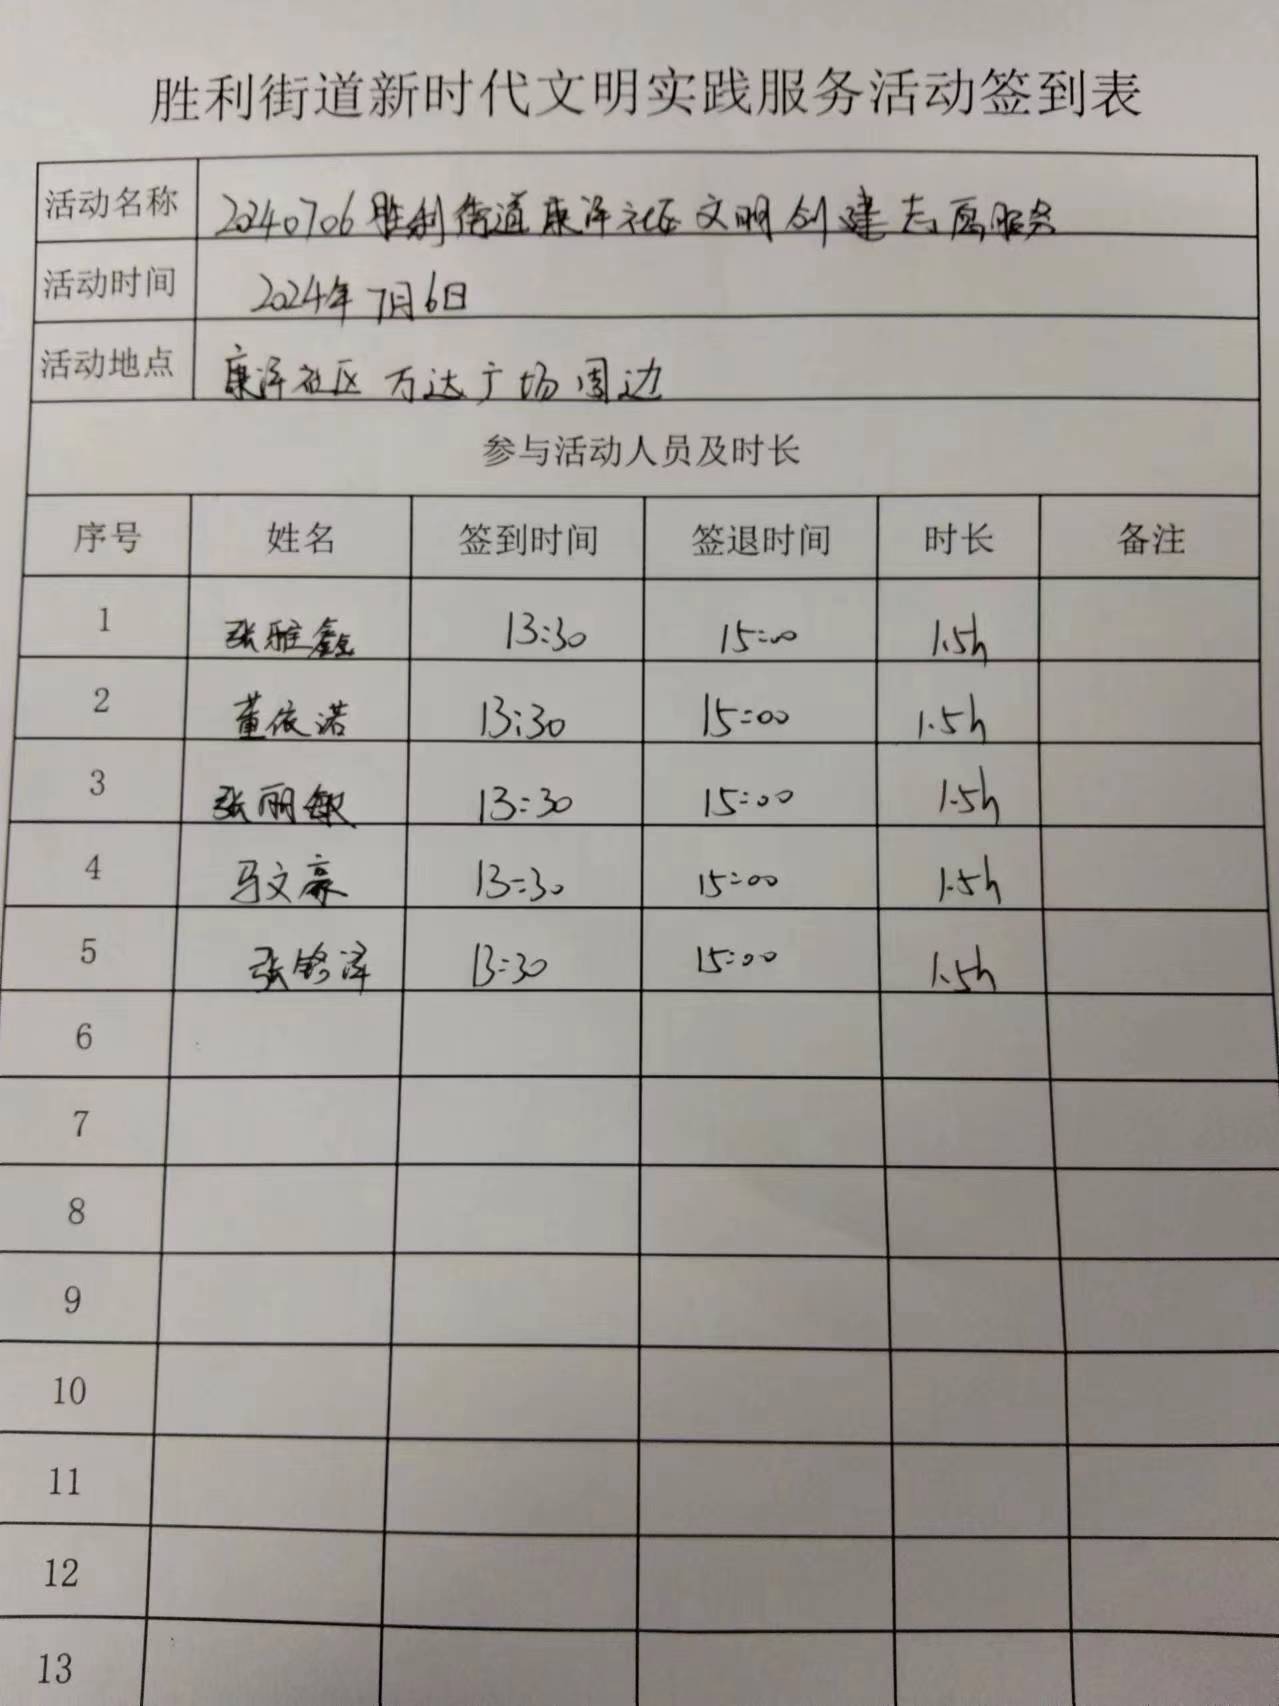 胜利街道新时代文明实践服务活动签到表
活动名称 20240706胜利街道康泽社区文明创建志愿服务
活动时间 2024年7月6日
活动地点 康泽社区万达广场周边
参与活动人员及时长
序号 姓名 签到时间 签退时间 时长 备注
1 张雅鑫 13:30 15:00 1.5h
2 董依诺 13:30 15:00 1.5h
3 张丽敏 13:30 15:00 1.5h
4 马文豪 13:30 15:00 1.5h
5 张铭泽 13:30 15:00 1.5h
6
7
8
9
10
11
12
13